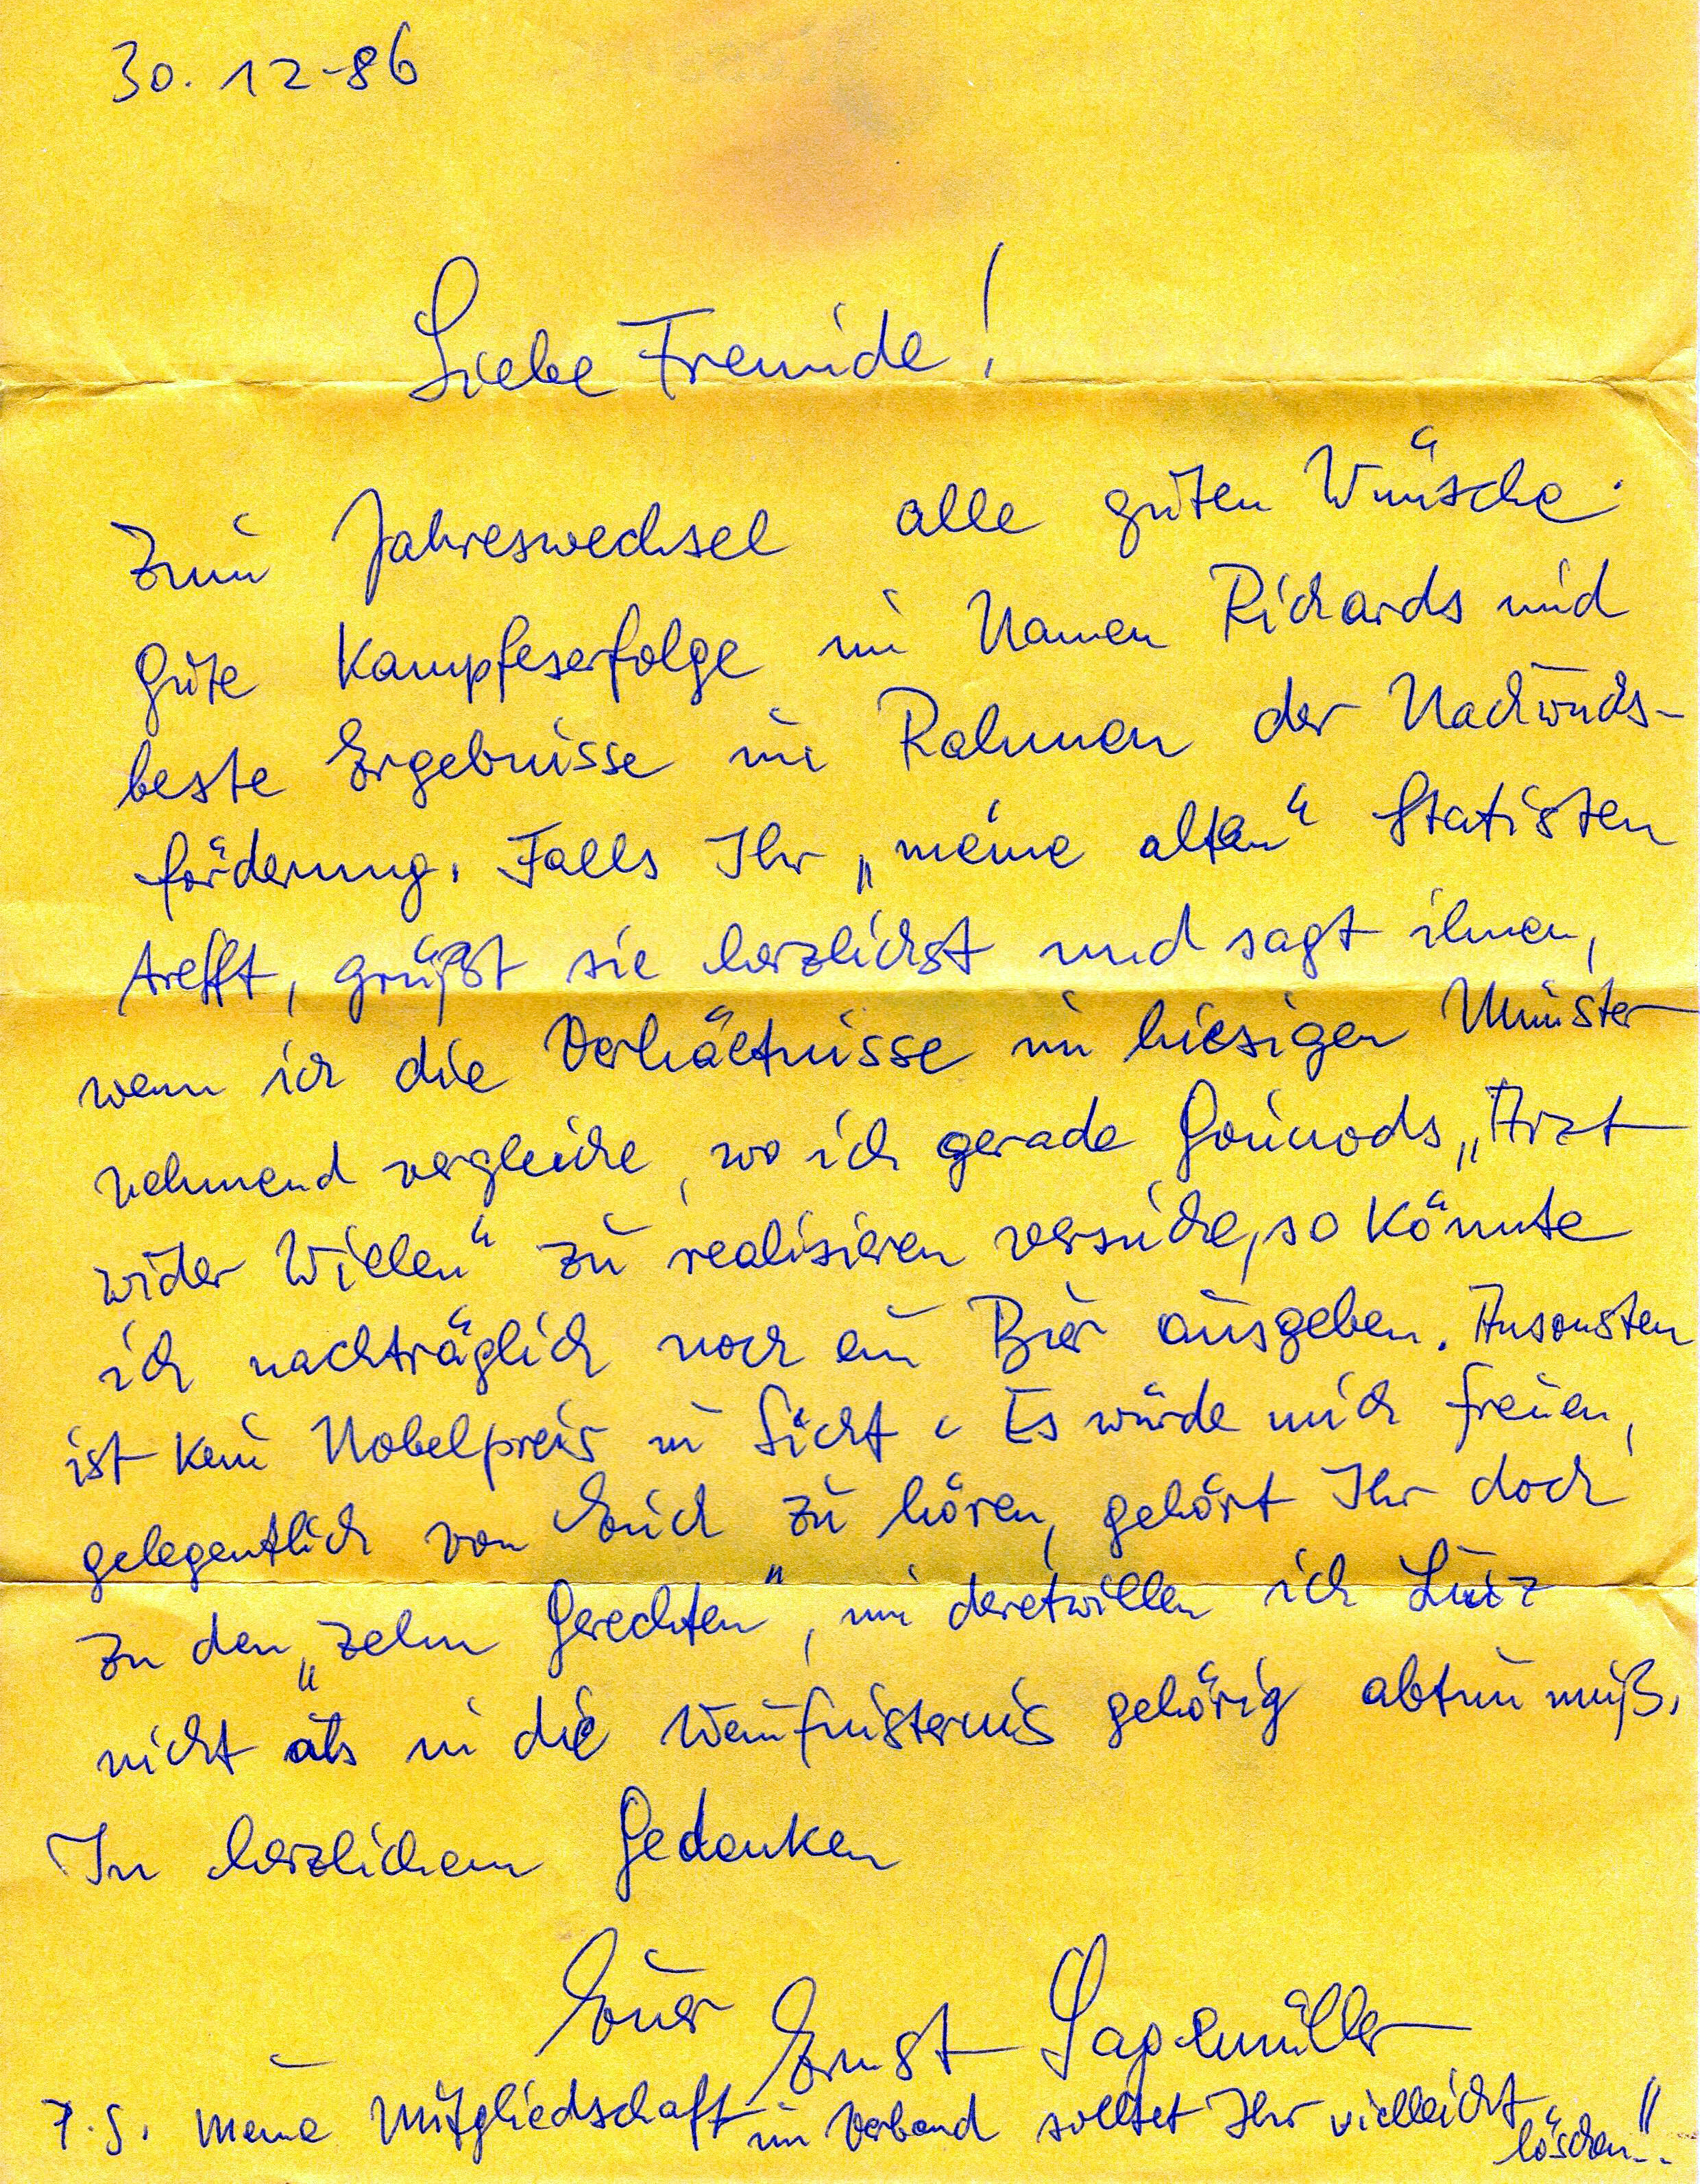 30. 12-86
Liebe Freunde!
Zum Jahreswechsel alle guten Wünsche.
Gute Kampfeserfolge im Namen Richards und
beste Ergebnisse im Rahmen der Nachwuchs-
förderung. Falls Ihr „meine alten“ Statisten
trefft, grüßt sie herzlichst und sagt ihnen,
wenn ich die Verhältnisse im hiesigen Münster
nehmend vergleiche, wo ich gerade Gounods „Arzt
wider Willen“ zu realisieren versuche, so könnte
ich nachträglich noch ein Bier ausgeben. Ansonsten
ist kein Nobelpreis in Sicht. Es würde mich freuen,
gelegentlich von Euch zu hören, gehört Ihr doch
zu den „zehn Gerechten“, um deretwillen ich Linz
nicht als in die gehörig abtun muß.
In herzlichem Gedenken
Euer Ernst
P.S. Meine Mitgliedschaft im Verband solltet Ihr vielleicht
löschen..!!